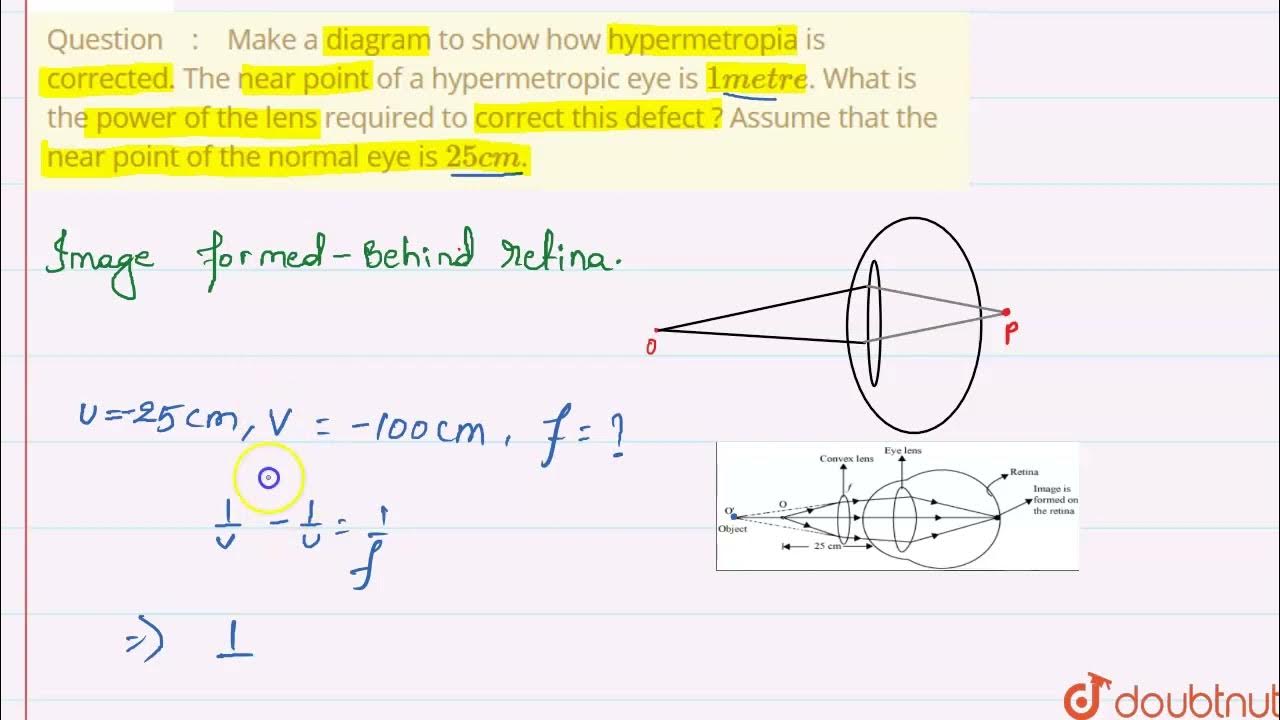 Question : Make a diagram to show how hypermetropia is
corrected. The near point of a hypermetropic eye is 1metre. What is
the power of the lens required to correct this defect ? Assume that the
near point of the normal eye is 25cm.
Image formed - Behind retina.
O
P
u=-25cm, v = -100cm, f = ?
1/v - 1/u = 1/f
⇒ 1
Convex lens
Eye lens
Retina
Image is
formed on
the retina
f
O
O'
Object
25 cm
doubtnut